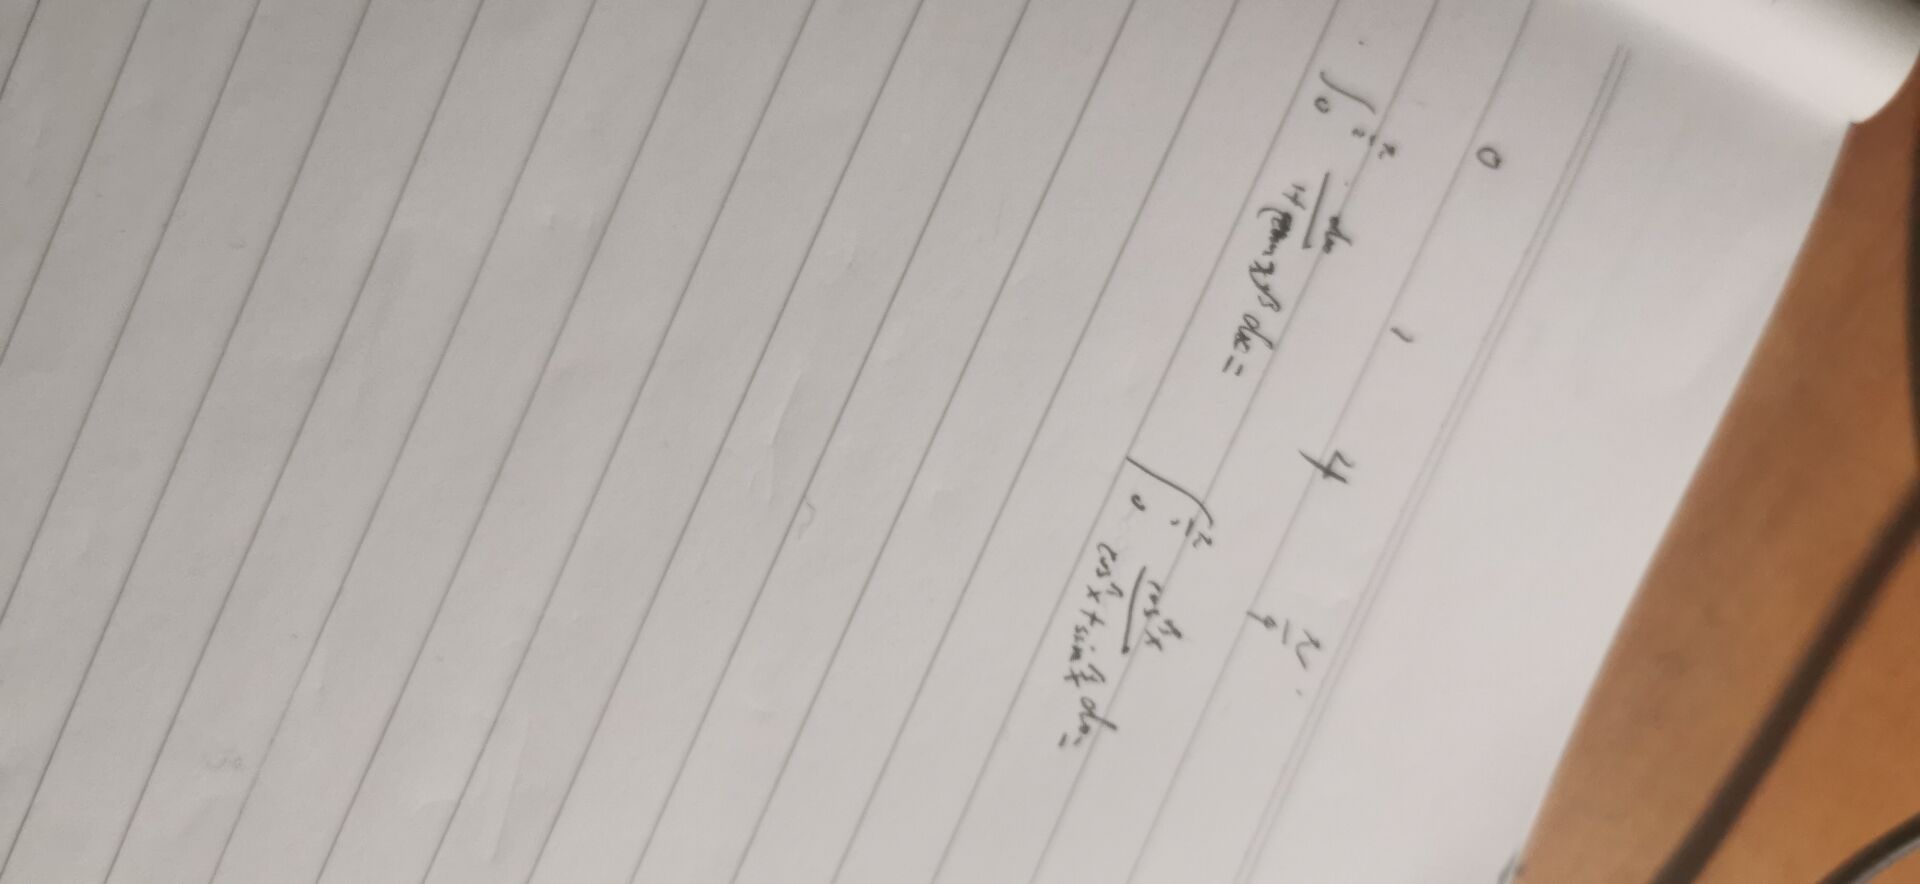 0 1 4 π/4
∫₀^{π/2} dx/(1+(tan x)^β) dx = ∫₀^{π/2} cos^β x/(cos^β x + sin^β x) dx =